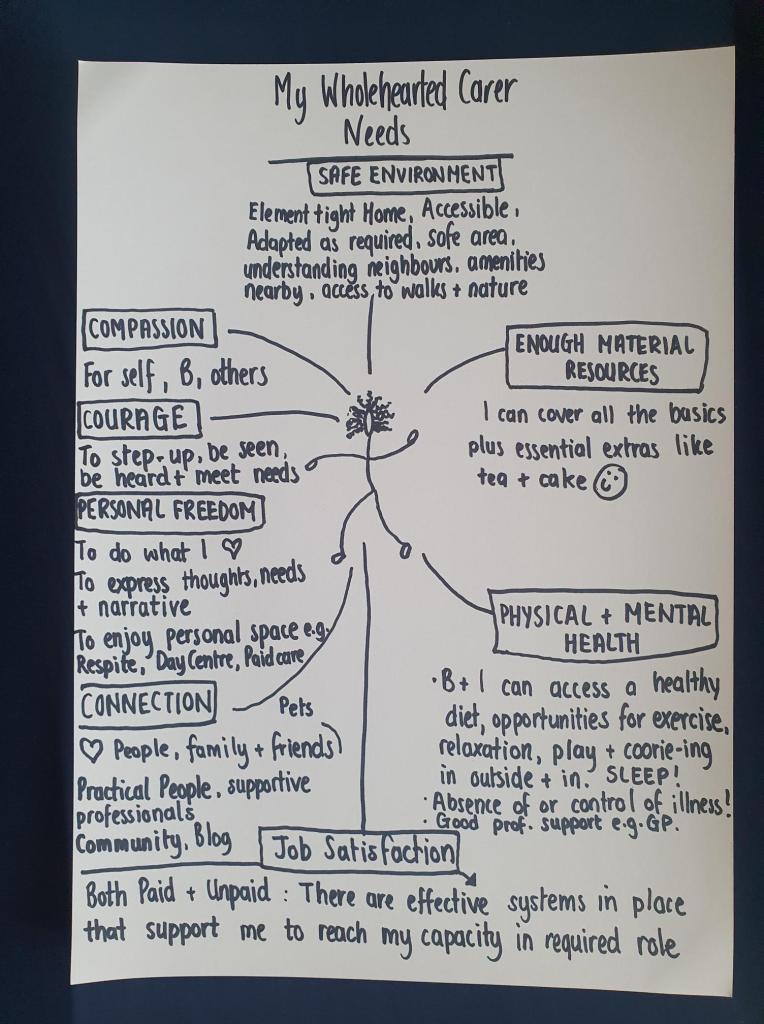 My Wholehearted Carer
Needs
SAFE ENVIRONMENT
Element tight Home, Accessible,
Adapted as required, safe area,
understanding neighbours, amenities
nearby, access to walks + nature
COMPASSION
For self, B, others
COURAGE
To step-up, be seen,
be heard + meet needs
PERSONAL FREEDOM
To do what I ♡
To express thoughts, needs
+ narrative
To enjoy personal space e.g.
Respite, Day Centre, Paid care
CONNECTION
Pets
♡ People, family + friends
Practical People, supportive
professionals
Community, Blog
ENOUGH MATERIAL
RESOURCES
I can cover all the basics
plus essential extras like
tea + cake
PHYSICAL + MENTAL
HEALTH
· B + I can access a healthy
diet, opportunities for exercise,
relaxation, play + coorie-ing
in outside + in. SLEEP!
· Absence of or control of illness!
· Good prof. support e.g. GP.
Job Satisfaction
Both Paid + Unpaid : There are effective systems in place
that support me to reach my capacity in required role